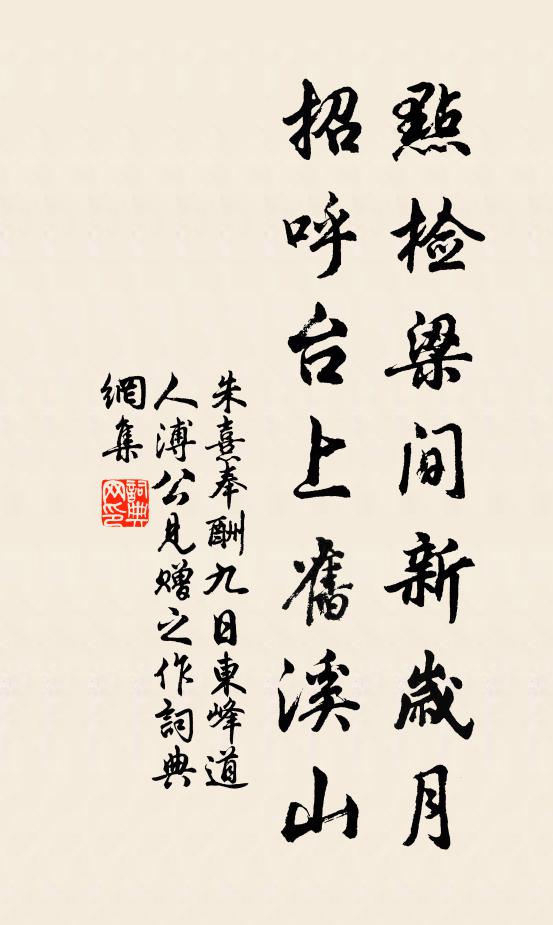 點檢梁間新歲月
招呼台上舊溪山
朱熹奉酬九日東峰道
人溥公見贈之作詞典
網集
詞典網印